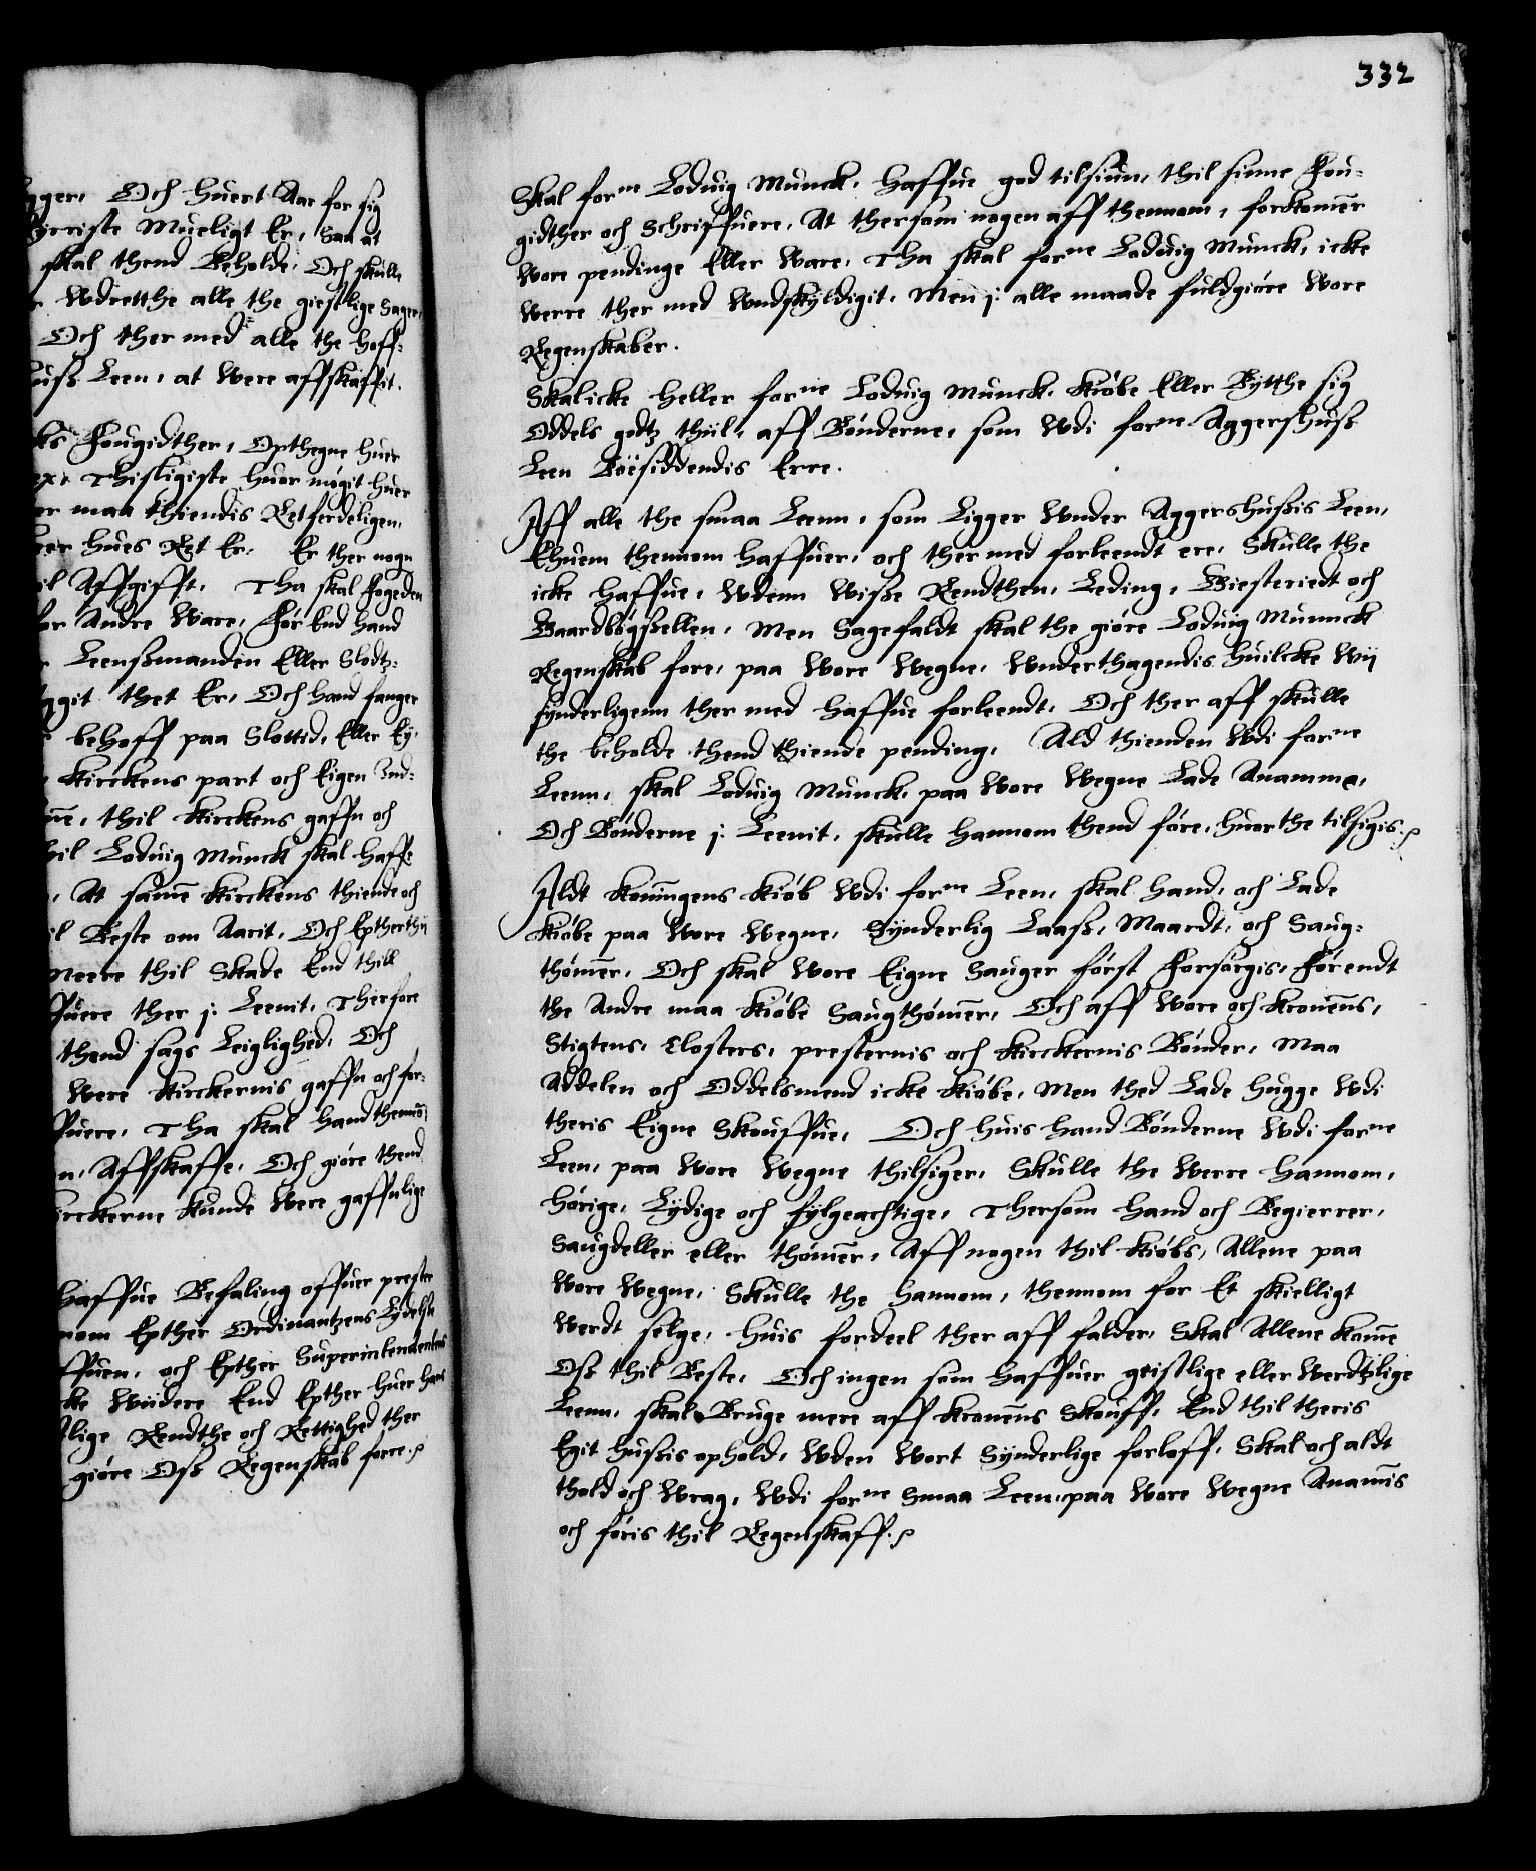 gger, Och huert Aar for sig
Yrriste Mueligt Er, Saa at
skal thend Beholde, Och skulle
Wdretthe alle the giestlige Sager,
Och ther med alle the hoff-
huss Leen, at Were affskaffit.
Fougidther, Opthegne huer
Thisligiste huor mögit huer
er maa thiendis Retferdeligen,
hues Ret Er, Er ther nogn
il Affgifft, Tha skal Fogeden
for Andre Ware, För End hand
Leenssmanden Eller Slodtz-
git thet Er, Och hand fanger
behoff paa Slottid, Eller Ey,
Kirckens part och Eigen Ind-
thil Kirckens gaffn och
hil Loduig Munck skal haff-
At samme Kirckens thiende och
il Beste om Aarit, Och Eptherthi
meere thil Skade End thill
ffuere ther j: Leenit, Therfore
thend sags Leiglighed, Och
Were Kirckernis gaffn och for-
ffuere, Tha skal hand thennom
n, Affskaffe, Och giöre thend
irckerne kunde Were gaffnlige
haffue Befaling offuer preste
nom Epther Ordinantzens Lydelse
ffuen, och Epther Superintendentens
cke Widere End Epther huer hans
lige Rendthe och Rettighed ther
giöre Oss Regenskab fore.
332
Skal forne Loduig Munck, haffue god tilsiun, thil sinne Fou-
gidther och Schriffuere, At thersom nogen aff thennom, forkommer
Wore pendinge Eller Ware, Tha skal forne Loduig Munck, icke
Werre ther med Wndskyldigit, Men j: alle maade fuldgiöre Wore
Regenskaber.
Skal icke heller forne Loduig Munck, Kiöbe Eller Bytthe sig
Oddels godtz thiil, aff Bönderne, som Wdi forne Aggershuss
Leen Böesiddendis Erre.
Aff alle the smaa Leenn, som Ligger Wnder Aggershussis Leen,
Ehuem thennom haffuer, och ther med forleendt ere, Skulle the
icke haffue, Wdenn Wisse Rendthen, Leding, Giesteriedt och
Gaardbögssellen, Men Sagefaldt skal the giöre Loduig Munnck
Regenskab fore, paa Wore Wegne, Wnderthagendis huilcke Wij
synderligenn ther med haffue forleendt, Och ther aff skulle
the beholde thend thiende pending, Ald thienden Wdi forne
Leenn, skal Loduig Munck, paa Wore Wegne Lade Anamme,
Och Bönderne j: Leenit, skulle hannom thend före, huor the tilsigis.
Aldt Konningens Kiöb Wdi forne Leen, skal hand, och Lade
Kiöbe paa Wore Wegne, Synderlig Laass, Maardt, och Saug-
thömmer, Och skal Wore Eigne Sauger först Forsörgis, Förendt
the Andre maa Kiöbe Saugthömmer, Och aff Wore och Kronens,
Stigtens, Closters, presternis och Kirckernis Bönder, Maa
Addelen och Oddelsmend icke Kiöbe, Men thed Lade hugge Wdi
theris Eigne Skouffue, Och huis hand Bönderne Wdi forne
Leen, paa Wore Wegne thilsiger, Skulle the Werre hannom,
hörige, Lydige och fylgeachtige, Thersom hand och Begierrer,
Saugdeller eller thömmer, Aff nogen thil Kiöbs, Allene paa
Wore Wegne, Skulle the hannom, thennom for Et skielligt
Werdt selge, huis fordeel ther aff falder, Skal Allene Komme
Oss thil Beste, Och ingen som haffuer geistlige eller Werdtzlige
Leenn, skal Bruge mere aff Kronens Skouff, End thil theris
Egit hussis ophold, Wden Wort Synderlige forloff, Skal och aldt
thold och Wrag, Wdi forne Smaa Leen, paa Wore Wegne Anammis
och föris thil Regenskaff.